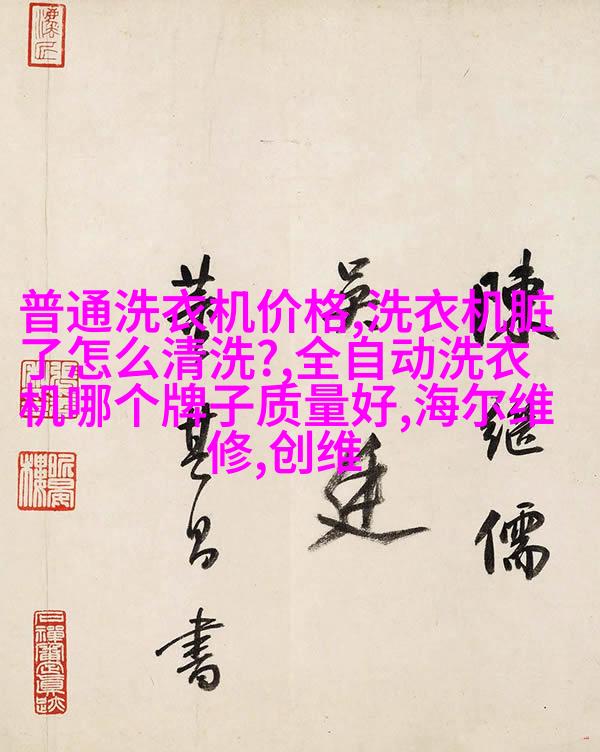 普通洗衣机价格,洗衣机脏
了怎么清洗?,全自动洗衣
机哪个牌子质量好,海尔维
修,创维
陳繼儒
吳廷
董其昌書